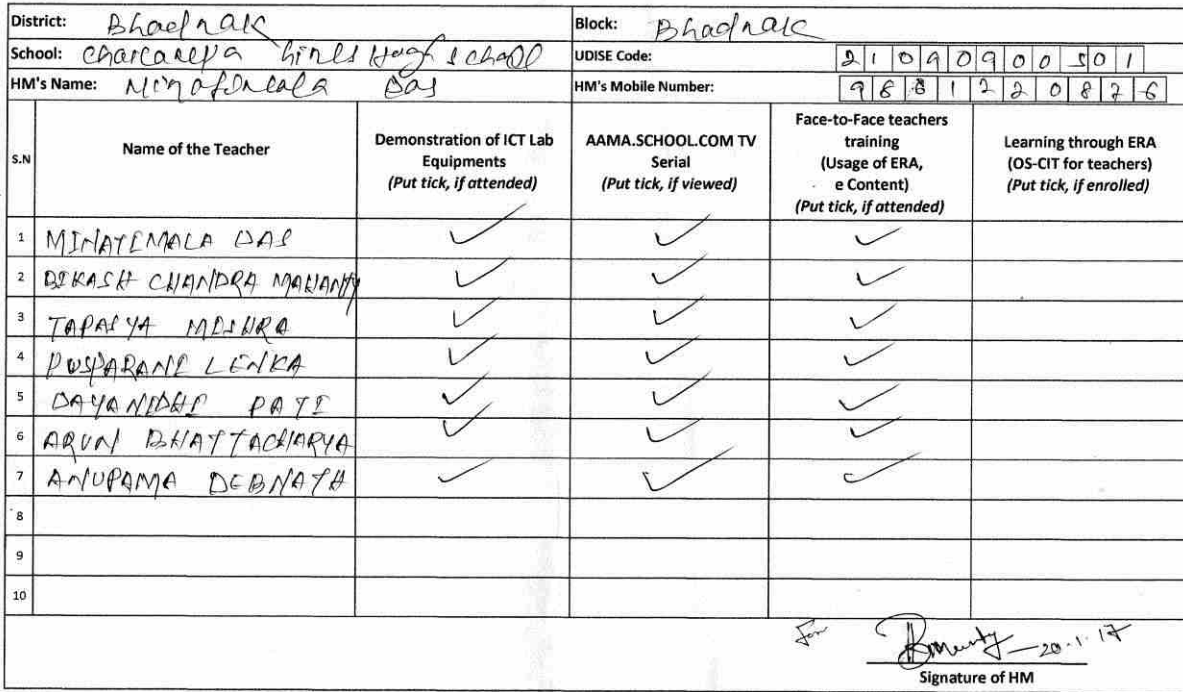 District: Bhadrak Block: Bhadrak
School: Girls High School UDISE Code: 21090900501
HM's Name: Das HM's Mobile Number: 9861220876
S.N Name of the Teacher Demonstration of ICT Lab Equipments (Put tick, if attended) AAMA.SCHOOL.COM TV Serial (Put tick, if viewed) Face-to-Face teachers training (Usage of ERA, e Content) (Put tick, if attended) Learning through ERA (OS-CIT for teachers) (Put tick, if enrolled)
1 MINATIMALA DAS ✓ ✓ ✓
2 BIKASH CHANDRA MAHANTY ✓ ✓ ✓
3 TAPASYA MISHRA ✓ ✓ ✓
4 PUSPARANI LENKA ✓ ✓ ✓
5 DAYANIDHI PATI ✓ ✓ ✓
6 ARUN BHATTACHARYA ✓ ✓ ✓
7 ANUPAMA DEBNATH ✓ ✓ ✓
8
9
10
For 20.1.17
Signature of HM